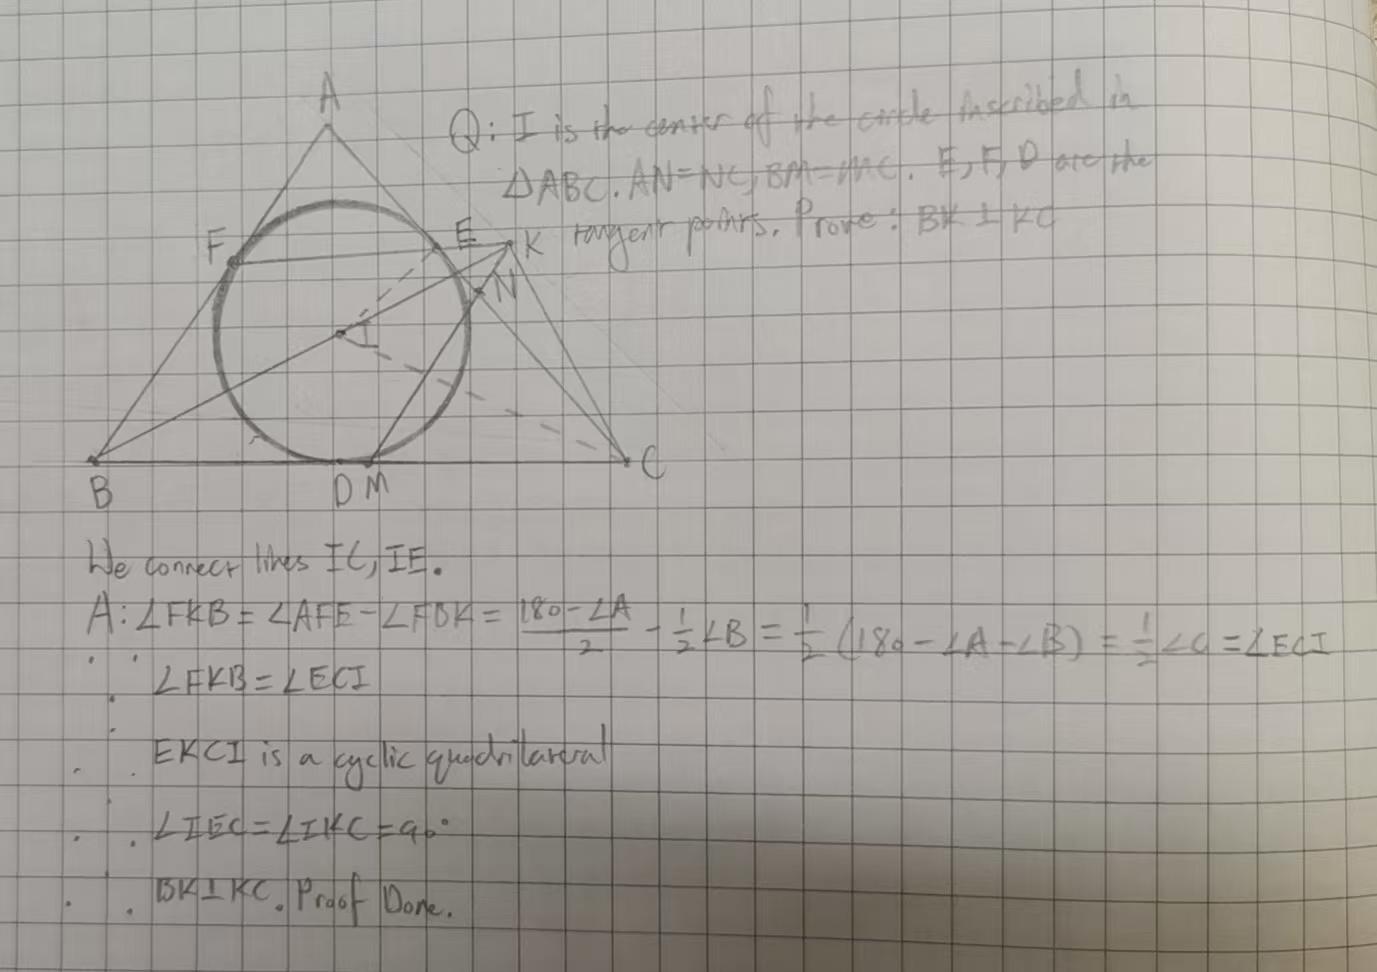 A
Q: I is the center of the circle inscribed in
△ABC. AN=NC, BM=MC. E, F, D are the
tangent points. Prove: BK⊥KC
F
E
K
N
I
B
D
M
C
We connect lines IC, IE.
A: ∠FKB = ∠AFE - ∠FBK = (180-∠A)/2 - 1/2∠B = 1/2 (180-∠A-∠B) = 1/2∠C = ∠ECI
∴ ∠FKB = ∠ECI
∴ EKCI is a cyclic quadrilateral
∴ ∠IEC = ∠IKC = 90°
∴ BK⊥KC. Proof Done.